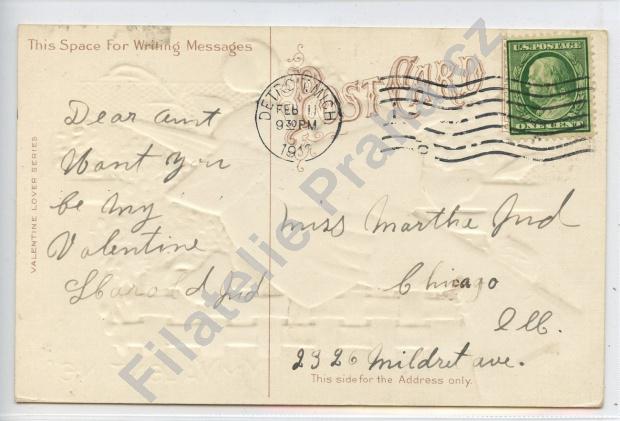 This Space For Writing Messages
POST CARD
U.S. POSTAGE
ONE CENT
DETROIT, MICH.
FEB 11
9 30 PM
VALENTINE LOVER SERIES
Dear Aunt
Want You
be my
Valentine
Harold Jud
Miss Marthe Jud
Chicago
Ill.
2326 Mildret ave.
This side for the Address only.
Filatelie Praha.cz